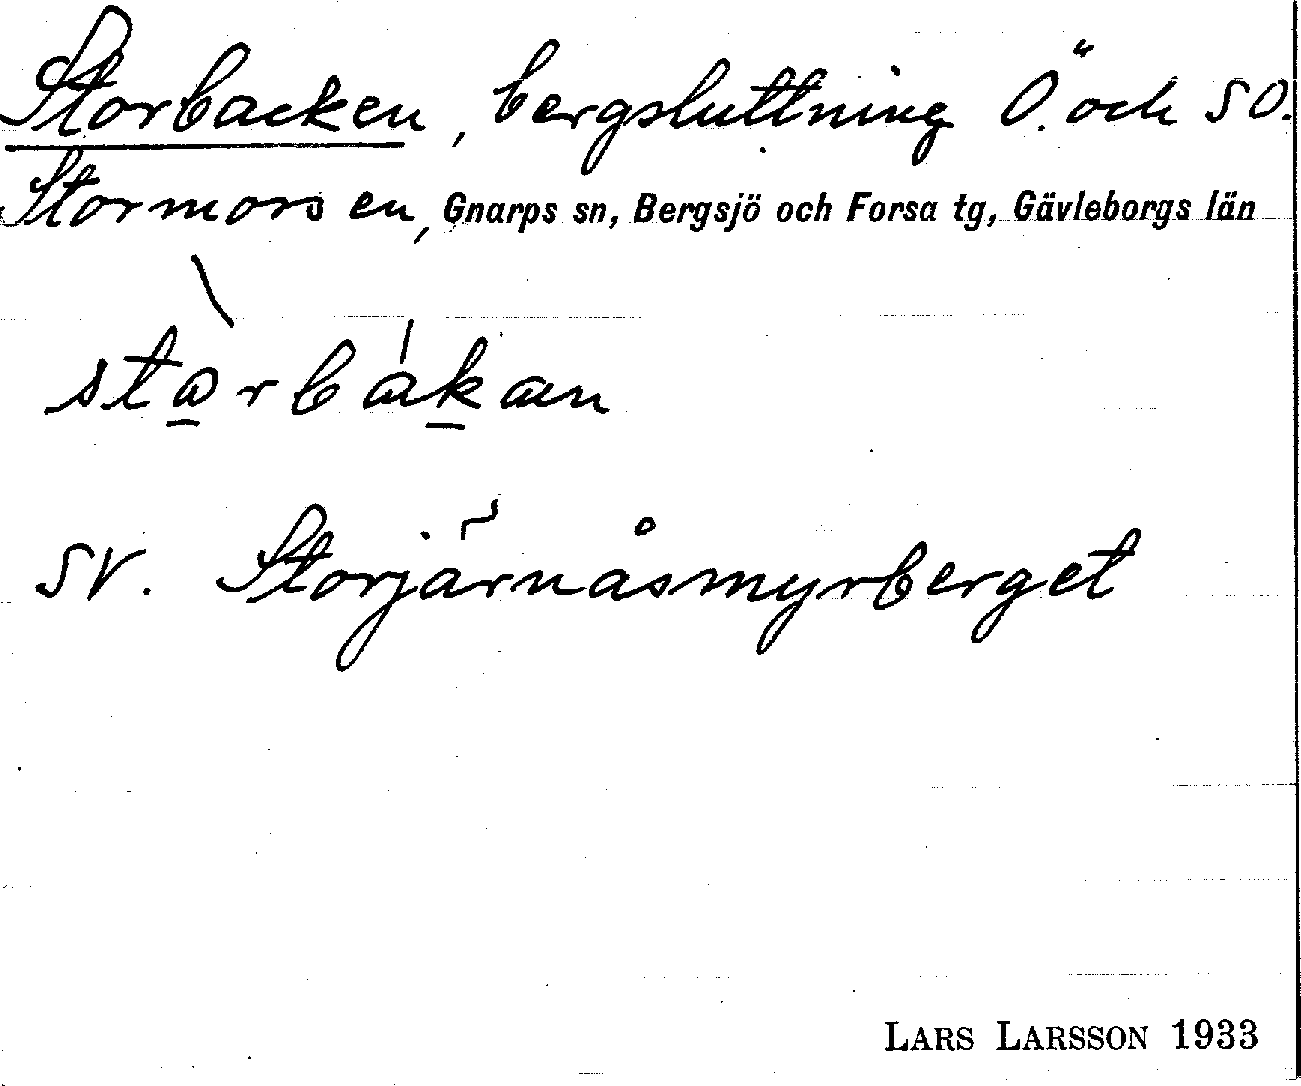 Storbacken, bergsluttning Ö. och SO.
Stormorsen, Gnarps sn, Bergsjö och Forsa tg, Gävleborgs län
stɷ̀rbákæn
SV. Storjärnåsmyrberget
LARS LARSSON 1933